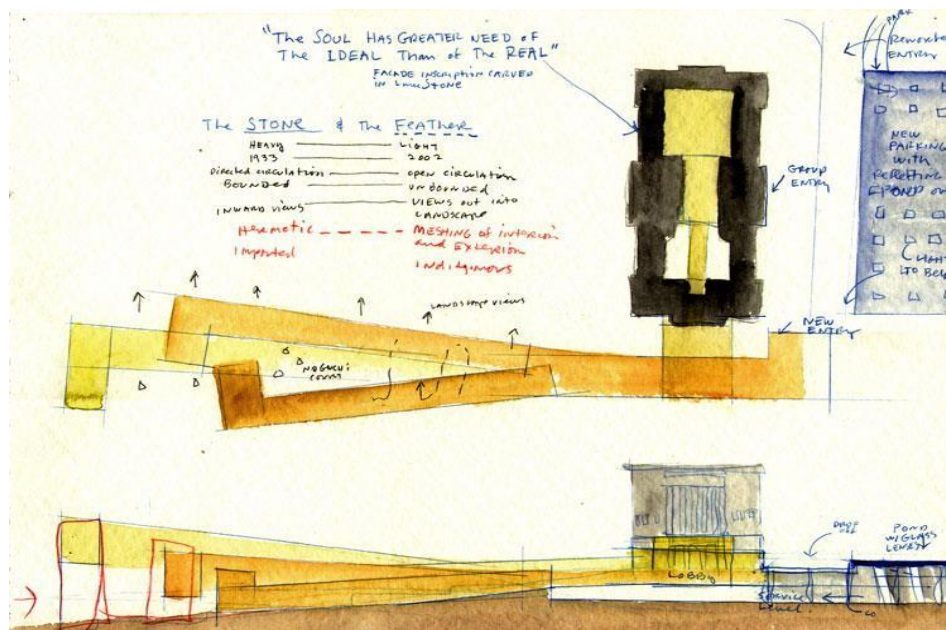 "The SOUL HAS GREATER NEED OF
The IDEAL Than of The REAL"
FACADE INSCRIPTION CARVED
IN LIMESTONE
The STONE & The FEATHER
HEAVY LIGHT
1933 2002
Directed circulation open circulation
BOUNDED UNBOUNDED
INWARD VIEWS VIEWS OUT INTO
LANDSCAPE
Hermetic MESHING of interior
and EXTERIOR
Imported
INDIGENOUS
LANDSCAPE VIEWS
NOGUCHI
COURT
GROUP
ENTRY
NEW
ENTRY
PARK
ENTRY
NEW
PARKING
with
REFLECTING
POND
LOBBY
DROP
OFF
SERVICE
Level
POND
W/GLASS